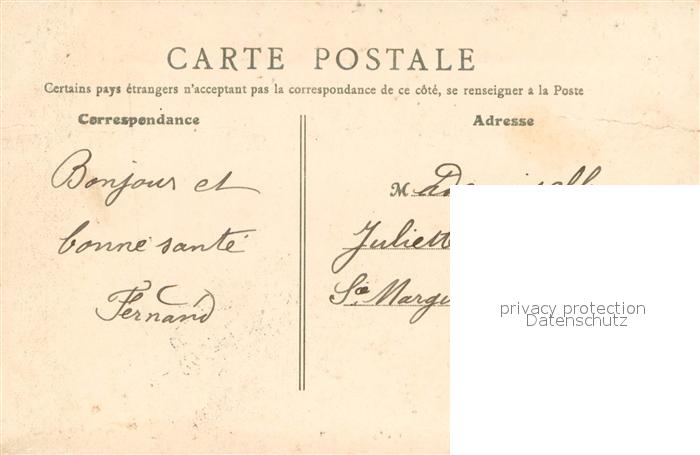 CARTE POSTALE
Certains pays étrangers n'acceptant pas la correspondance de ce côté, se renseigner à la Poste
Correspondance
Bonjour et
bonne santé
Fernand
Adresse
M
Juliette
Ste
privacy protection
Datenschutz